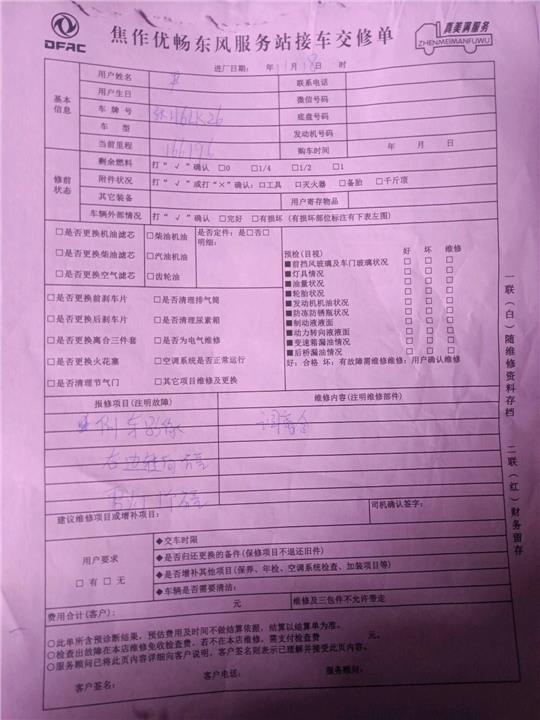 DFAC
焦作优畅东风服务站接车交修单
真美满服务
ZHENMEIMANFUWU
进厂日期： 年 11 月 18 日 时
基本信息
用户姓名 联系电话
用户生日 微信号码
车牌号 底盘号码
车型 发动机号码
当前里程 166196 购车时间 年 月 日
修前状态
剩余燃料 打“√”确认 □0 □1/4 □1/2 □1
附件状况 打“√”或打“×”确认：□工具 □灭火器 □备胎 □千斤顶
其它装备 用户寄存物品
车辆外部情况 打“√”确认 □完好 □有损坏（有损坏部位标注有下表左图）
□是否更换机油滤芯 □柴油机油 是否定件：是□否□
明细：
□是否更换柴油滤芯 □汽油机油
□是否更换空气滤芯 □齿轮油
预检（目视） 好 坏 维修
■前挡风玻璃及车门玻璃状况 □ □ □
■灯具情况 □ □ □
■油量状况 □ □ □
■轮胎状况 □ □ □
■发动机机油状况 □ □ □
■防冻防锈瓶状况 □ □ □
■制动液液面 □ □ □
■动力转向液液面 □ □ □
■变速箱漏油情况 □ □ □
■后桥漏油情况 □ □ □
好：合格 坏：有故障需维修维修：用户确认维修
□是否更换前刹车片 □是否清理排气筒
□是否更换后刹车片 □是否清理尿素箱
□是否更换离合三件套 □是否为电气维修
□是否更换火花塞 □空调系统是否正常运行
□是否清理节气门 □其它项目维修及更换
报修项目（注明故障） 维修内容（注明维修部件）
建议维修项目或增补项目： 司机确认签字：
用户要求
□有 □无
◆交车时限
◆是否归还更换的备件（保修项目不退还旧件）
◆是否增补其他项目（保养、年检、空调系统检查、加装项目等）
◆车辆是否需要清洁：
费用合计（客户）： 元 维修及三包件不允许带走
○此单所含预诊断结果，预估费用及时间不做结算依据，结算以结算单为准。
○检查出故障在本店维修免收检查费，若不在本店维修，需支付检查费 元。
○服务顾问已将此页内容详细向客户说明，客户签名则表示已理解并接受此页内容。
客户签名： 客户电话： 服务顾问：
一联（白）随维修资料存档 二联（红）财务留存